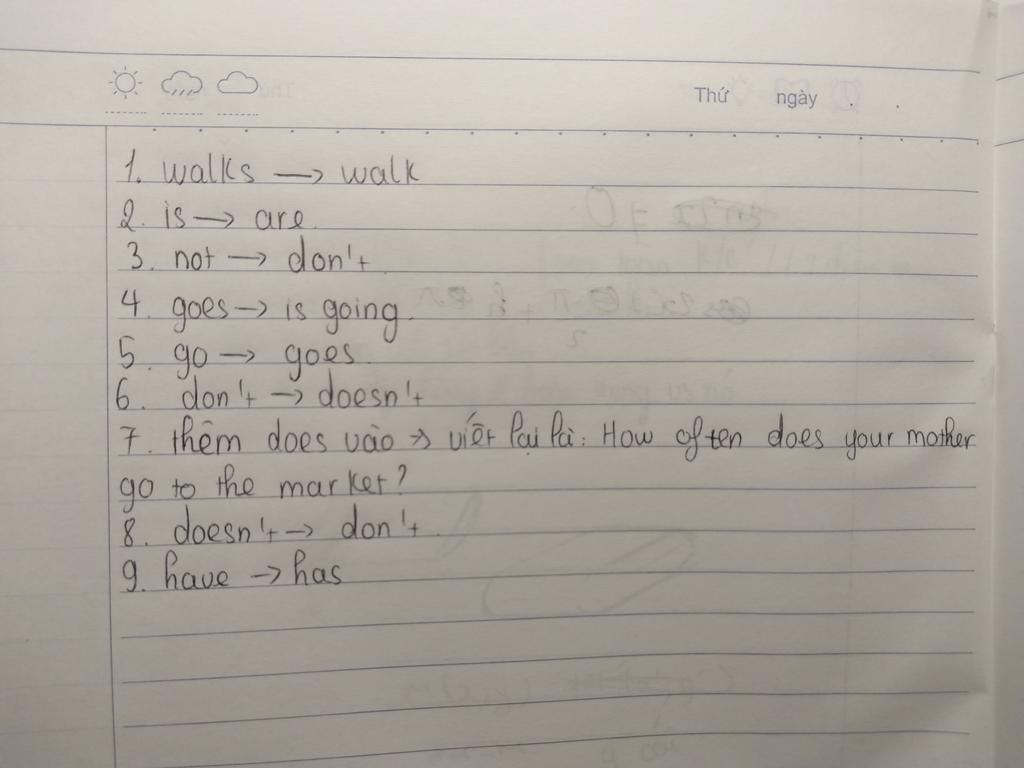 Thứ ngày . .
1. walks → walk
2. is → are
3. not → don't
4. goes → is going.
5. go → goes
6. don't → doesn't
7. thêm does vào → viết lại là: How often does your mother
go to the market?
8. doesn't → don't
9. have → has